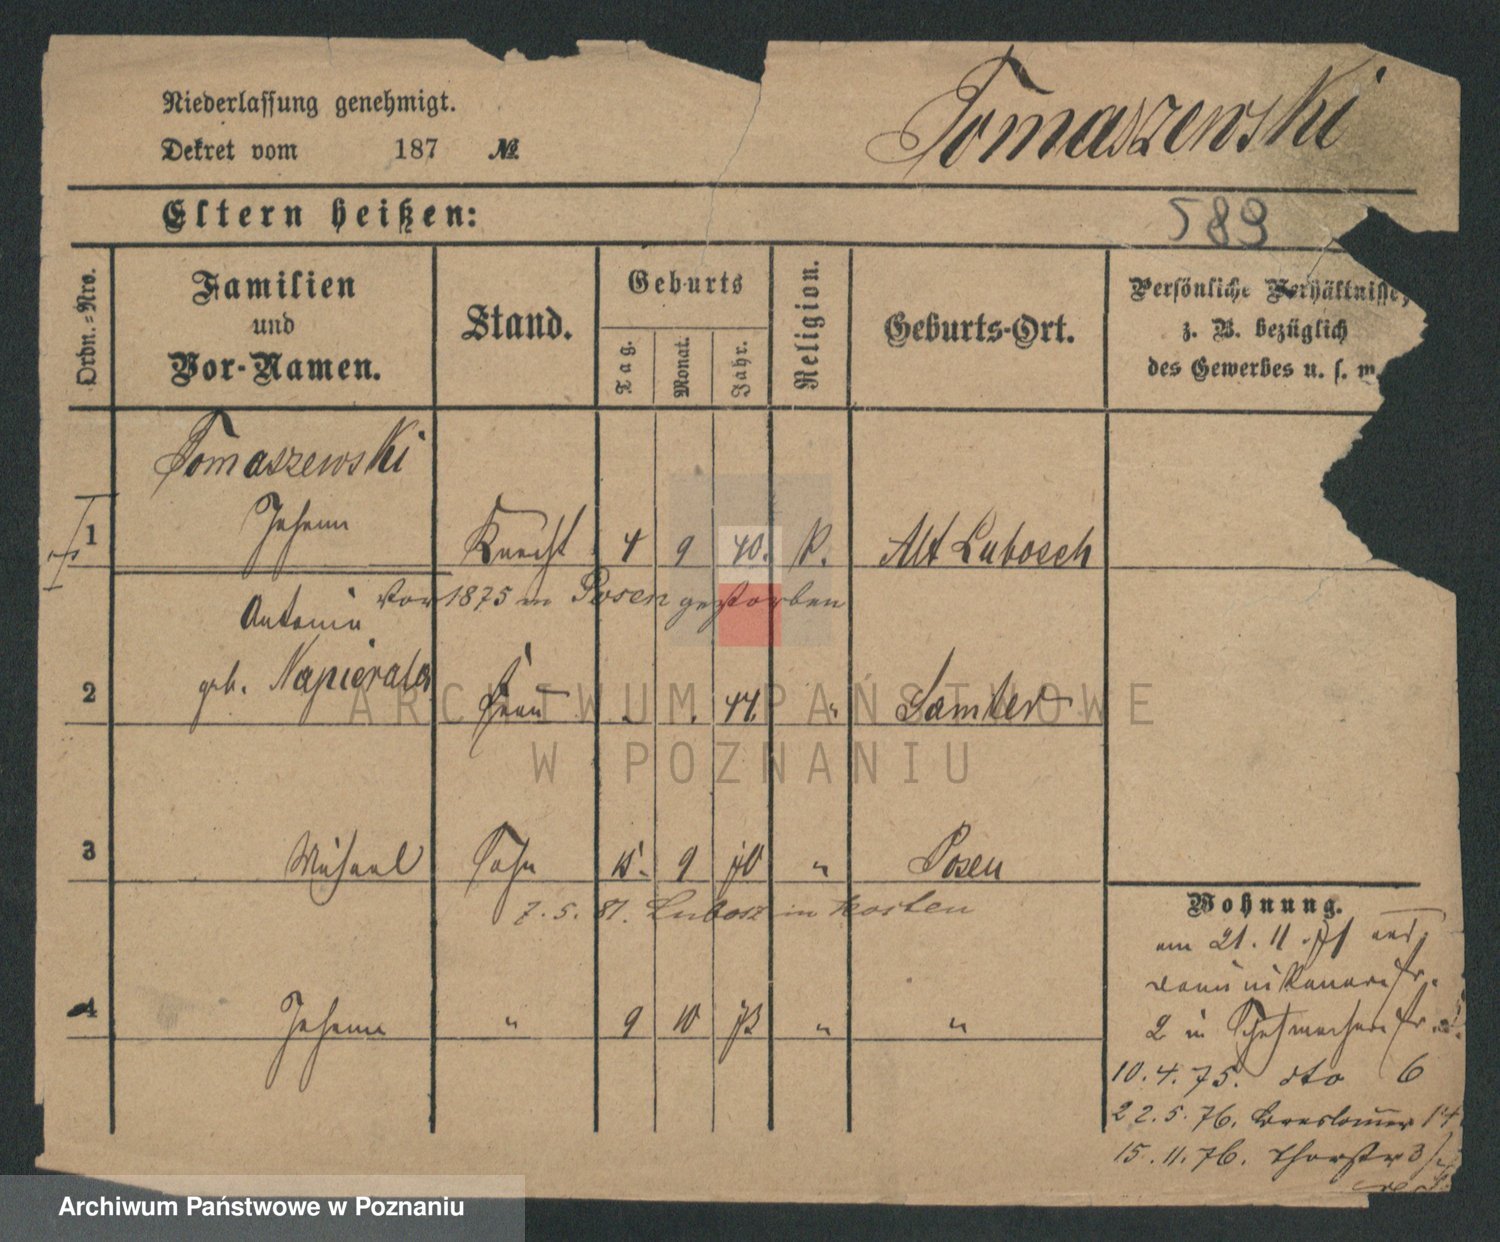 Niederlassung genehmigt.
Dekret vom 187 №
Tomaszewski
Eltern heißen:
589
Ordn.-Nro.
Familien
und
Vor-Namen.
Stand.
Geburts
Tag.
Monat.
Jahr.
Religion.
Geburts-Ort.
Persönliche Verhältnisse,
z. B. bezüglich
des Gewerbes u. s. w.
Tomaszewski
1 Johann Knecht 4 9 40. k. Alt Lubosch
Vor 1875 in Posen gestorben
Antonia
2 geb. Napierala Frau 44. " Samter
3 Michael Sohn 15. 9 70 " Posen
7. 5. 81. Lubosz in Kosten
4 Johann " 9 10 73 " "
Wohnung.
am 21. 11. 71
Dominikanerstr.
2 in Schuhmacherstr.
10. 4. 75. dto 6
22. 5. 76. Breslauer 14
15. 11. 76. Thorstr 3
ARCHIWUM PAŃSTWOWE
W POZNANIU
Archiwum Państwowe w Poznaniu